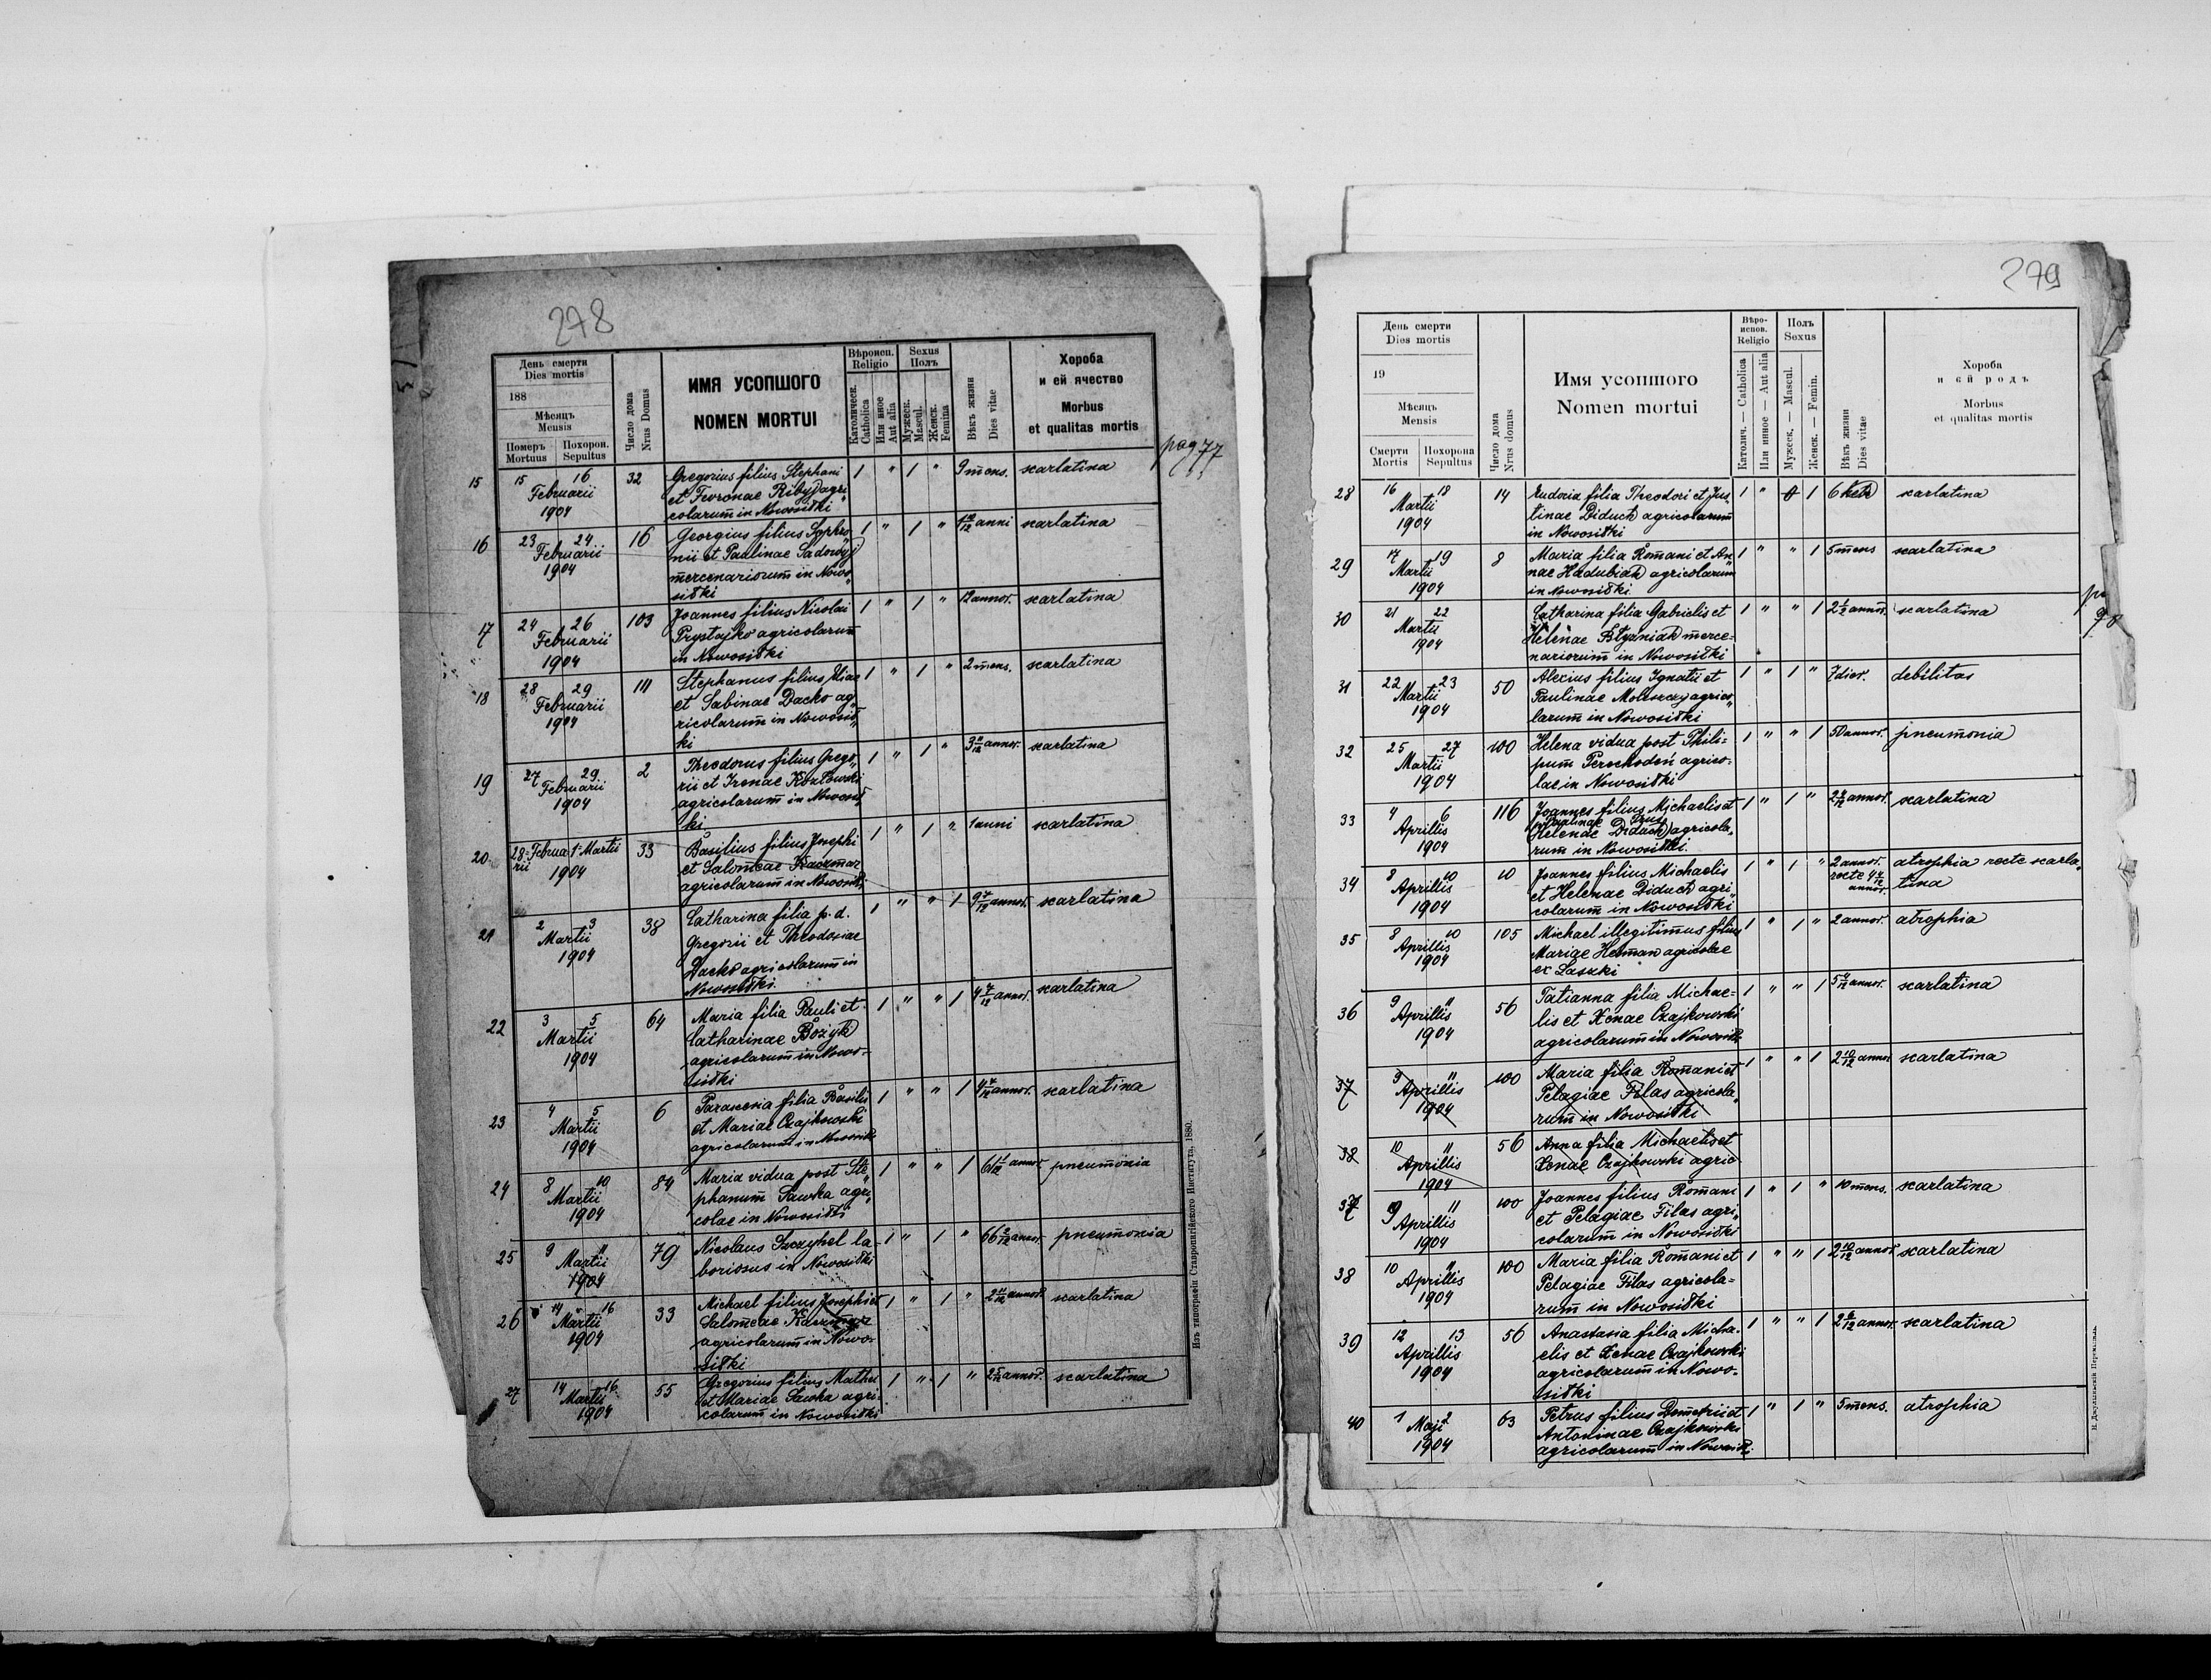 278
День смерти
Dies mortis
188
Мѣсяцъ
Mensis
Померъ Похорон.
Mortuus Sepultus
Число дома
Nrus Domus
ИМЯ УСОПШОГО
NOMEN MORTUI
Вѣроисп.
Religio
Католическ.
Catholica
Или иное
Aut alia
Sexus
Полъ
Мужеск.
Mascul.
Женск.
Femina
Вѣкъ жизни
Dies vitae
Хороба
и ей ячество
Morbus
et qualitas mortis
pag 77
15 15 16 32 Gregorius filius Stephani 1 " 1 " 9 mens. scarlatina
Februarii et Fevronae agri„
1904 colarum in Nowosiółki
16 23 24 16 Georgius filius Sophro„ 1 " 1 " anni scarlatina
Februarii nii et Paulinae Sadowyj
1904 mercenariorum in Nowo„
siółki
17 24 26 103 Joannes filius Nicolai 1 " 1 " 12 annor. scarlatina
Februarii Prystajko agricolarum
1904 in Nowosiółki
18 28 29 111 Stephanus filius Eliae 1 " 1 " 2 mens. scarlatina
Februarii et Sabinae Dacko ag„
1904 ricolarum in Nowosiół„
ki
19 27 29 2 Theodorus filius Grego„ 1 " 1 " annor. scarlatina
Februarii rii et Irenae Kozłowski
1904 agricolarum in Nowosiół„
ki
20 28 Februa 1 Martii 33 Basilius filius Josephi 1 " 1 " 1 anni scarlatina
rii 1904 et Salomeae Kaczmar
agricolarum in Nowosiółki
21 2 3 38 Catharina filia p. d. 1 " " 1 9 7/12 annor. scarlatina
Martii Gregorii et Theodosiae
1904 Dacko agricolarum in
Nowosiółki
22 3 5 64 Maria filia Pauli et 1 " " 1 4 7/12 annor. scarlatina
Martii Catharinae Bożyk
1904 agricolarum in Nowo-
siółki
23 4 5 6 Parascevia filia Basilii 1 " " 1 4 7/12 annor. scarlatina
Martii et Mariae Czajkowski
1904 agricolarum in Nowosiółki
24 8 10 84 Maria vidua post Ste„ 1 " " 1 annor. pneumonia
Martii phanum Sawka agri„
1904 colae in Nowosiółki
25 9 11 79 Nicolaus Szczyhel la- 1 " 1 " 66 2/12 annor. pneumonia
Martii boriosus in Nowosiółki
1904
26 14 16 33 Michael filius Josephi et 1 " 1 " 2 11/12 annor. scarlatina
Martii Salomeae Kaczmar
1904 agricolarum in Nowo-
siółki
27 14 16 55 Gregorius filius Mathei 1 " 1 " annor. scarlatina
Martii et Mariae Sawka agri-
1904 colarum in Nowosiółki
Изъ типографіи Ставропигійского Института, 1880.
279
День смерти
Dies mortis
19
Мѣсяцъ
Mensis
Смерти Похорона
Mortis Sepultus
Число дома
Nrus domus
Имя усопшого
Nomen mortui
Вѣро-
испов.
Religio
Католич. — Catholica
Или инное — Aut alia
Полъ
Sexus
Мужеск. — Mascul.
Женск. — Femin.
Вѣкъ жизни
Dies vitae
Хороба
и ей родъ
Morbus
et qualitas mortis
28 16 18 14 Eudocia filia Theodori et Jus„ 1 " 1 6 scarlatina
Martii tinae Diduch agricolarum
1904 in Nowosiółki
29 17 19 8 Maria filia Romani et An„ 1 " " 1 5 mens scarlatina
Martii nae Hadubiak agricolarum
1904 in Nowosiółki
30 21 22 Catharina filia Gabrielis et 1 " " 1 annor. scarlatina
Martii Helenae merce=
1904 nariorum in Nowosiółki
31 22 23 50 Alexius filius Ignatii et 1 " 1 " 7 dier. debilitas
Martii Paulinae agrico„
1904 larum in Nowosiółki
32 25 27 100 Helena vidua post Phili= 1 " " 1 50 annor. pneumonia
Martii pum agrico-
1904 lae in Nowosiółki
33 4 6 116 Joannes filius Michaelis et 1 " 1 " annor. scarlatina
Paulinae Prus
Aprillis Helenae Diduch agricola„
1904 rum in Nowosiółki
34 8 10 10 Joannes filius Michaelis 1 " 1 " 2 annor. atrophia recte scarla„
Aprillis et Helenae Diduch agri„ recte annor. tina
1904 colarum in Nowosiółki
35 8 10 105 Michael illegitimus filius 1 " 1 " 2 annor. atrophia
Aprillis Mariae Herman agricolae
1904 ex Laszki
36 9 11 56 Tatianna filia Michae= 1 " " 1 annor. scarlatina
Aprillis lis et Xenae Czajkowski
1904 agricolarum in Nowosiółki
37 9 11 100 Maria filia Romani et 1 " " 1 2 10/12 annor. scarlatina
Aprillis Pelagiae Filas agricola„
1904 rum in Nowosiółki
38 10 11 56 Anna filia Michaelis et
Aprillis Xenae Czajkowski agric
1904
37 9 11 100 Joannes filius Romani 1 " 1 " 10 mens. scarlatina
Aprillis et Pelagiae Filas agri„
1904 colarum in Nowosiółki
38 10 11 100 Maria filia Romani et 1 " " 1 2 10/12 annor. scarlatina
Aprillis Pelagiae Filas agricola=
1904 rum in Nowosiółki
39 12 13 56 Anastasia filia Micha- 1 " " 1 annor. scarlatina
Aprillis elis et Xenae Czajkowski
1904 agricolarum in Nowo-
siółki
40 1 2 63 Petrus filius Demetrii et 1 " 1 " 5 mens. atrophia
Maji Antoninae Czajkowski
1904 agricolarum in Nowosiółki